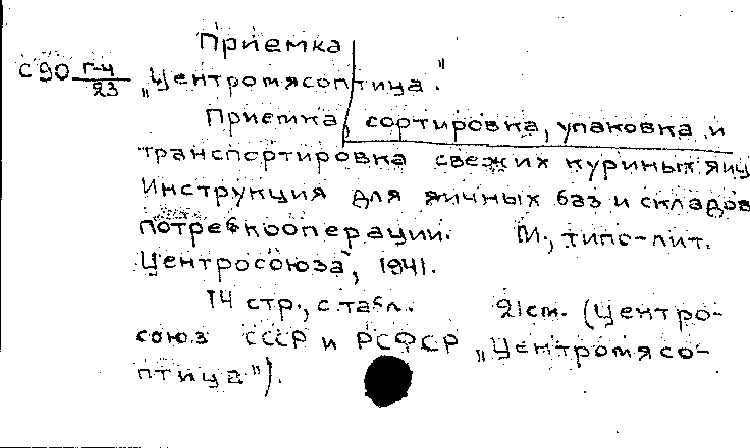 Приемка
С 90 г-4/23 „Центромясоптица."
Приемка, сортировка, упаковка и
транспортировка свежих куриных яиц
Инструкция для яичных баз и складов
потребкооперации. М., типо-лит.
Центросоюза, 1941.
14 стр., с табл. 21 см. (Центро-
союз СССР и РСФСР „Центромясо-
птица").